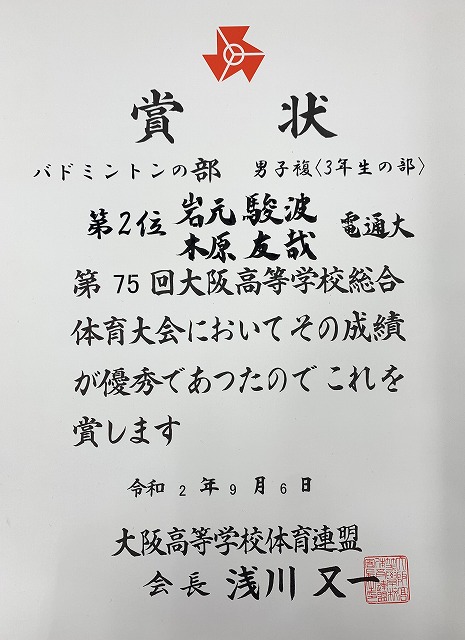 賞状
バドミントンの部 男子複〈3年生の部〉
第2位 岩元駿波 電通大
木原友哉
第75回大阪高等学校総合
体育大会においてその成績
が優秀であつたのでこれを
賞します
令和2年9月6日
大阪高等学校体育連盟
会長 浅川又一